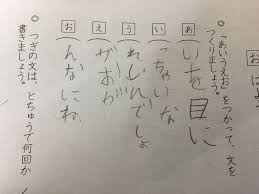 ○「あいうえお」をつかって、文を
つくりましょう。
あ(いを目に
い(っちゃいな
う(れしんでしょ
え(が
お(んなにね
○つぎの文は、とちゅうで何回か
書きましょう。